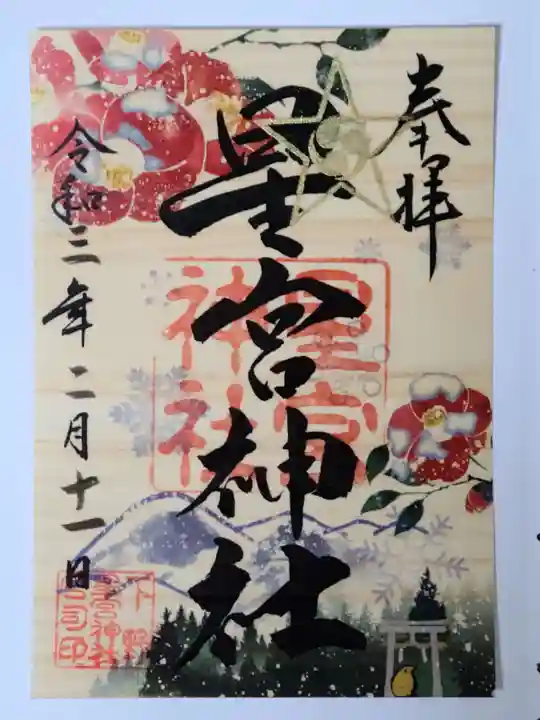 奉拝
星宮神社
星宮
神社
令和三年二月十一日
下野
星宮神社
宮司印